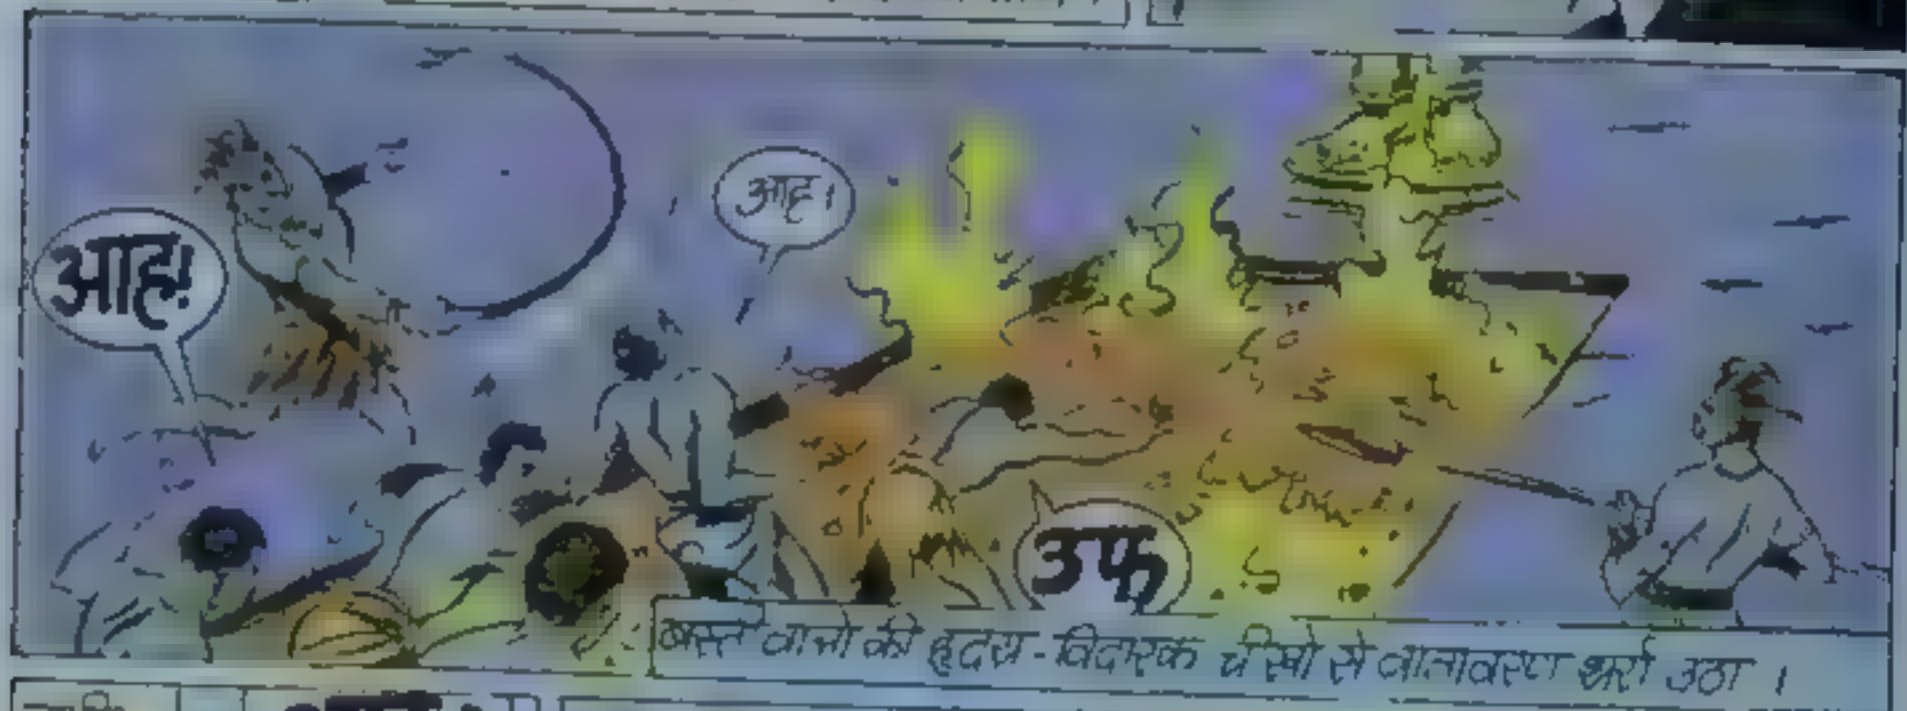 आह!
आह।
उफ
मरते वालों की हृदय-विदारक चीखों से वातावरण थर्रा उठा ।